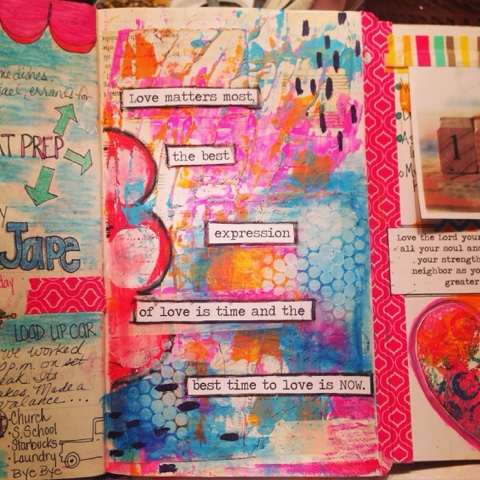 errands for
PREP
Jape
day
LOAD UP CAR
we worked
p.m. on set
Made a
Church
S. School
Starbucks
Laundry
Bye Bye
Love matters most,
the best
expression
of love is time and the
best time to love is NOW.
1
Love the Lord your
all your soul and
your strength
neighbor as yo
greater